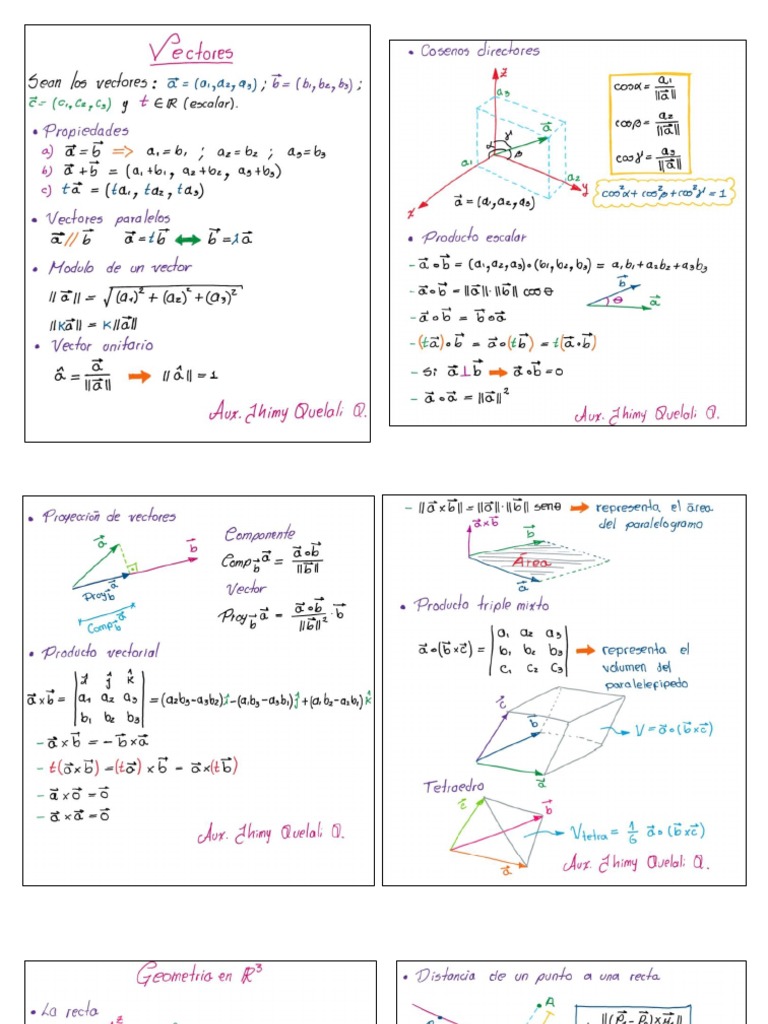 Vectores
Sean los vectores: a⃗ = (a₁,a₂,a₃) ; b⃗ = (b₁,b₂,b₃) ;
c⃗ = (c₁,c₂,c₃) y t ∈ ℝ (escalar).
• Propiedades
a) a⃗ = b⃗ ⇒ a₁=b₁ ; a₂=b₂ ; a₃=b₃
b) a⃗ + b⃗ = (a₁+b₁, a₂+b₂, a₃+b₃)
c) ta⃗ = (ta₁, ta₂, ta₃)
• Vectores paralelos
a⃗ // b⃗ a⃗ = tb⃗ ↔ b⃗ = λa⃗
• Modulo de un vector
||a⃗|| = √((a₁)² + (a₂)² + (a₃)²)
||ka⃗|| = k||a⃗||
• Vector unitario
â = a⃗/||a⃗|| → ||â|| = 1
Aux. Jhimy Quelali Q.
• Cosenos directores
z
a₃
a⃗
γ
α
β
a₁
a₂
x
y
a⃗ = (a₁,a₂,a₃)
cosα = a₁/||a⃗||
cosβ = a₂/||a⃗||
cosγ = a₃/||a⃗||
cos²α + cos²β + cos²γ = 1
• Producto escalar
- a⃗∘b⃗ = (a₁,a₂,a₃)∘(b₁,b₂,b₃) = a₁b₁+a₂b₂+a₃b₃
- a⃗∘b⃗ = ||a⃗||·||b⃗|| cosθ
b⃗
θ
a⃗
- a⃗∘b⃗ = b⃗∘a⃗
- (ta⃗)∘b⃗ = a⃗∘(tb⃗) = t(a⃗∘b⃗)
- Si a⃗ ⊥ b⃗ → a⃗∘b⃗ = 0
- a⃗∘a⃗ = ||a⃗||²
Aux. Jhimy Quelali Q.
• Proyección de vectores
a⃗
b⃗
Proy_b⃗ a⃗
Comp_b⃗ a⃗
Componente
Comp_b⃗ a⃗ = a⃗∘b⃗/||b⃗||
Vector
Proy_b⃗ a⃗ = a⃗∘b⃗/||b⃗||² · b⃗
• Producto vectorial
a⃗×b⃗ = | î ĵ k̂ ; a₁ a₂ a₃ ; b₁ b₂ b₃ | = (a₂b₃-a₃b₂)î-(a₁b₃-a₃b₁)ĵ+(a₁b₂-a₂b₁)k̂
- a⃗×b⃗ = -b⃗×a⃗
- t(a⃗×b⃗) = (ta⃗)×b⃗ = a⃗×(tb⃗)
- a⃗×o⃗ = o⃗
- a⃗×a⃗ = o⃗
Aux. Jhimy Quelali Q.
- ||a⃗×b⃗|| = ||a⃗||·||b⃗|| senθ → representa el área
del paralelogramo
a⃗×b⃗
b⃗
Área
a⃗
• Producto triple mixto
a⃗∘(b⃗×c⃗) = | a₁ a₂ a₃ ; b₁ b₂ b₃ ; c₁ c₂ c₃ | → representa el
volumen del
paralelepipedo
c⃗
b⃗
a⃗
V = a⃗∘(b⃗×c⃗)
Tetraedro
c⃗
b⃗
a⃗
V_tetra = 1/6 a⃗∘(b⃗×c⃗)
Aux. Jhimy Quelali Q.
Geometria en ℝ³
• La recta
z
• Distancia de un punto a una recta
A